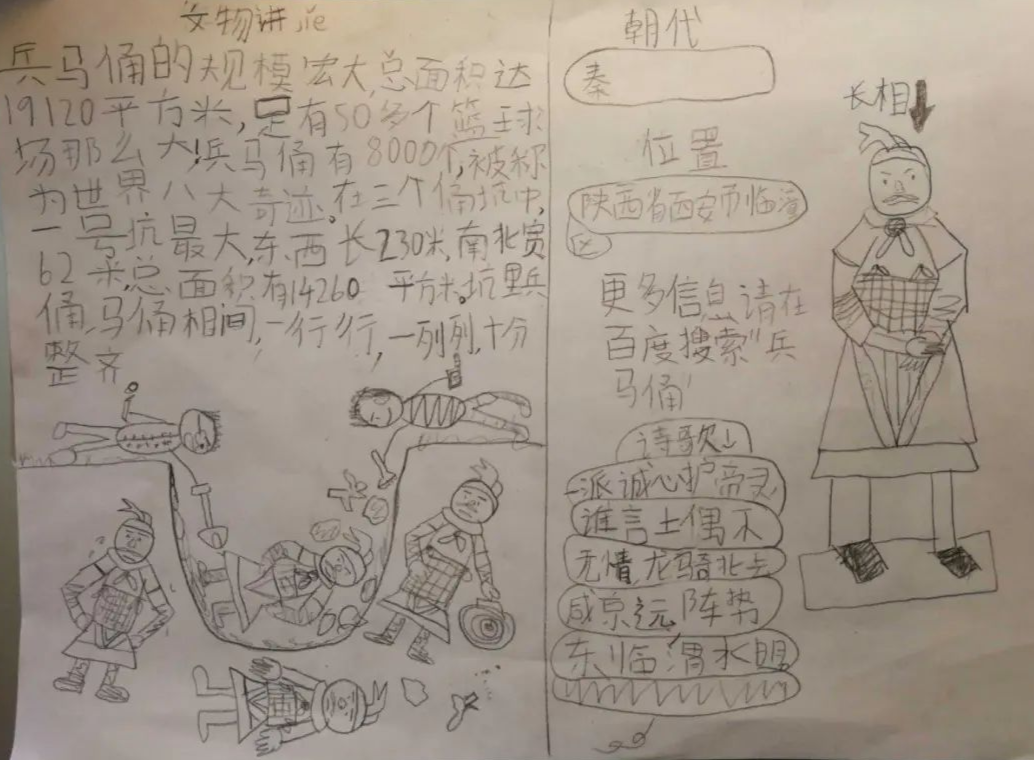 文物讲jie
兵马俑的规模宏大,总面积达
19120平方米,足有50多个篮球
场那么大!兵马俑有8000个,被称
为世界八大奇迹。在三个俑坑中,
一号坑最大,东西长230米,南北宽
62米,总面积有14260平方米。坑里兵
俑、马俑相间,一行行,一列列,十分
整齐
朝代
秦
位置
陕西省西安市临潼
区
更多信息,请在
百度搜索"兵
马俑"
诗歌↓
一派诚心护帝灵
谁言土偶不
无情,龙骑北去
咸京远,阵势
东临渭水明
长相↓